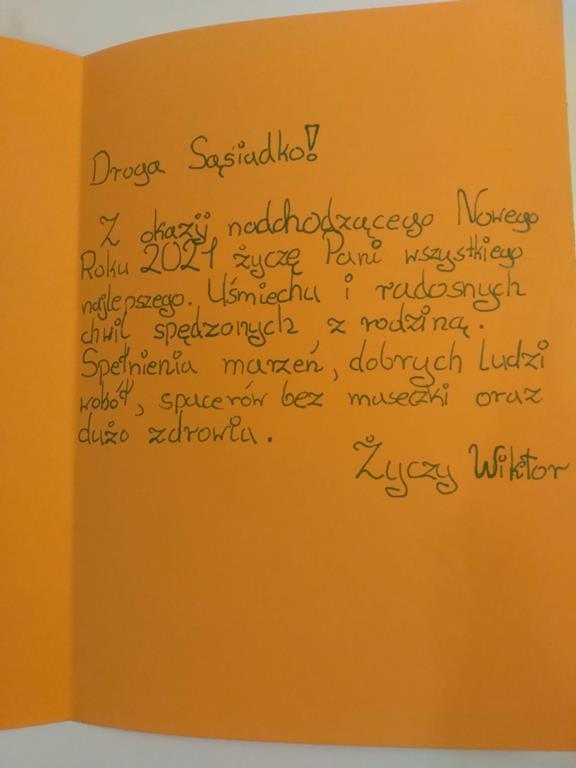 Droga Sąsiadko!
Z okazij nadchodzącego Nowego
Roku 2021 życzę Pani wszystkiego
najlepszego. Uśmiechu i radosnych
chwil spędzonych z rodziną.
Spełnienia marzeń, dobrych ludzi
wobół, spacerów bez maseczki oraz
dużo zdrowia.
Życzy Wiktor